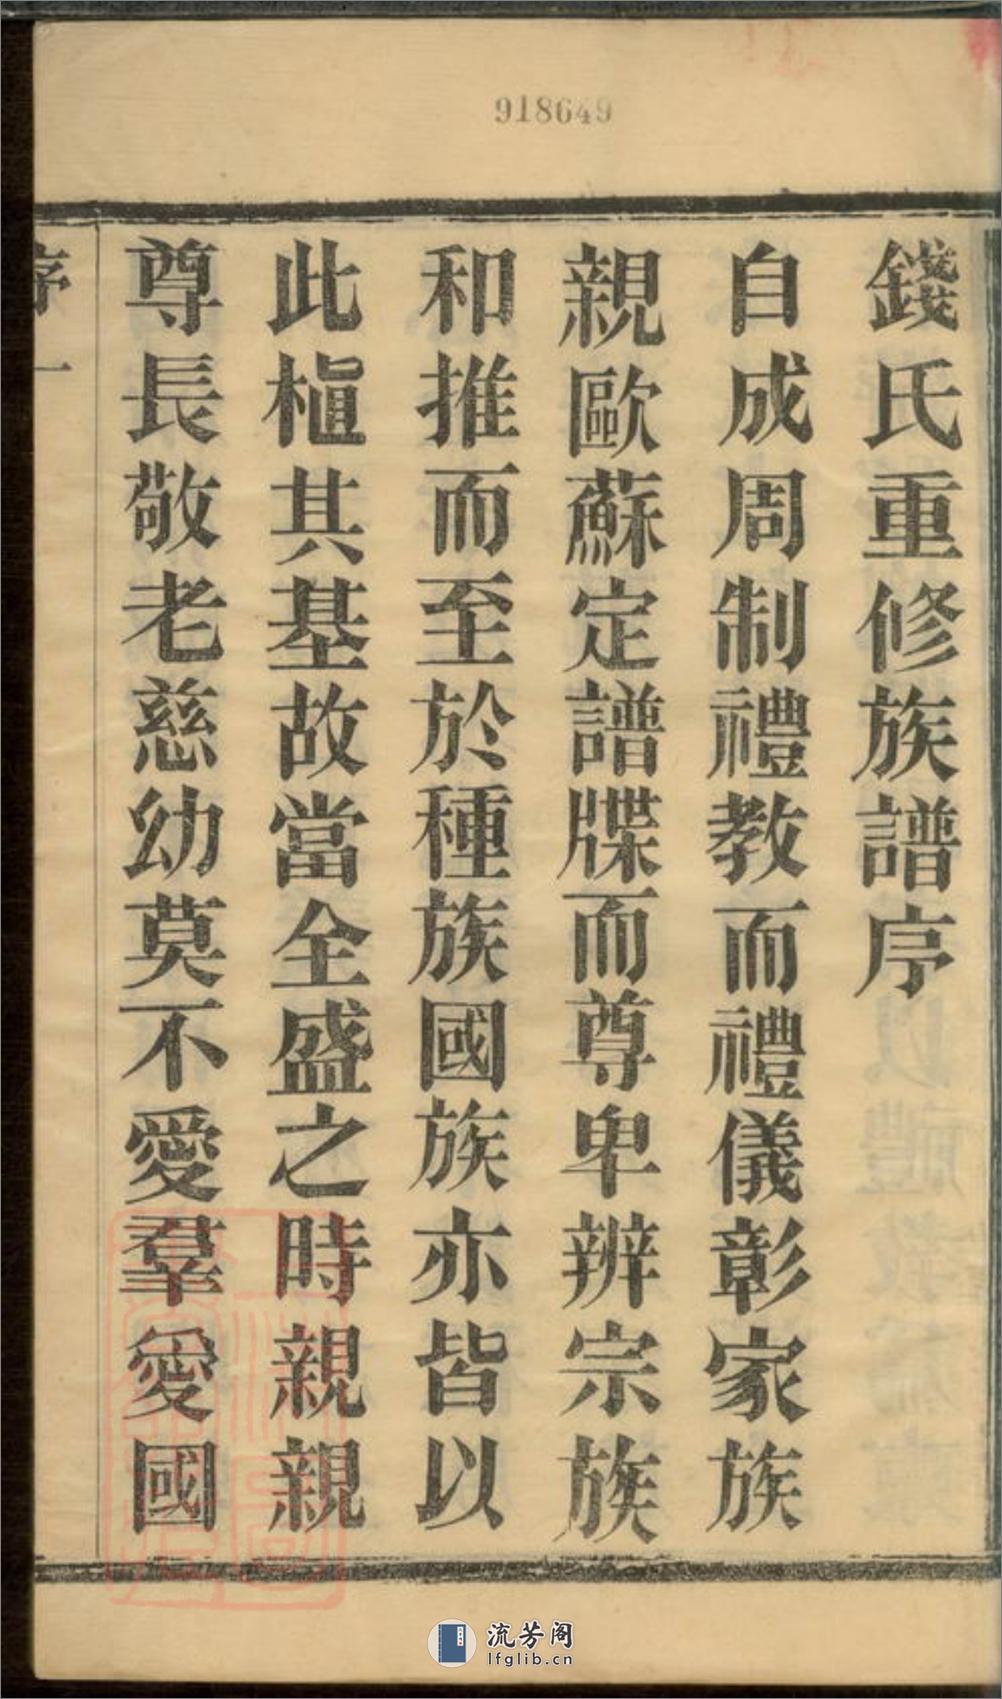 918649
錢氏重修族譜序
自成周制禮教而禮儀彰家族
親歐蘇定譜牒而尊卑辨宗族
和推而至於種族國族亦皆以
此植其基故當全盛之時親親
尊長敬老慈幼莫不愛羣愛國
序 一
流芳阁
lfglib.cn